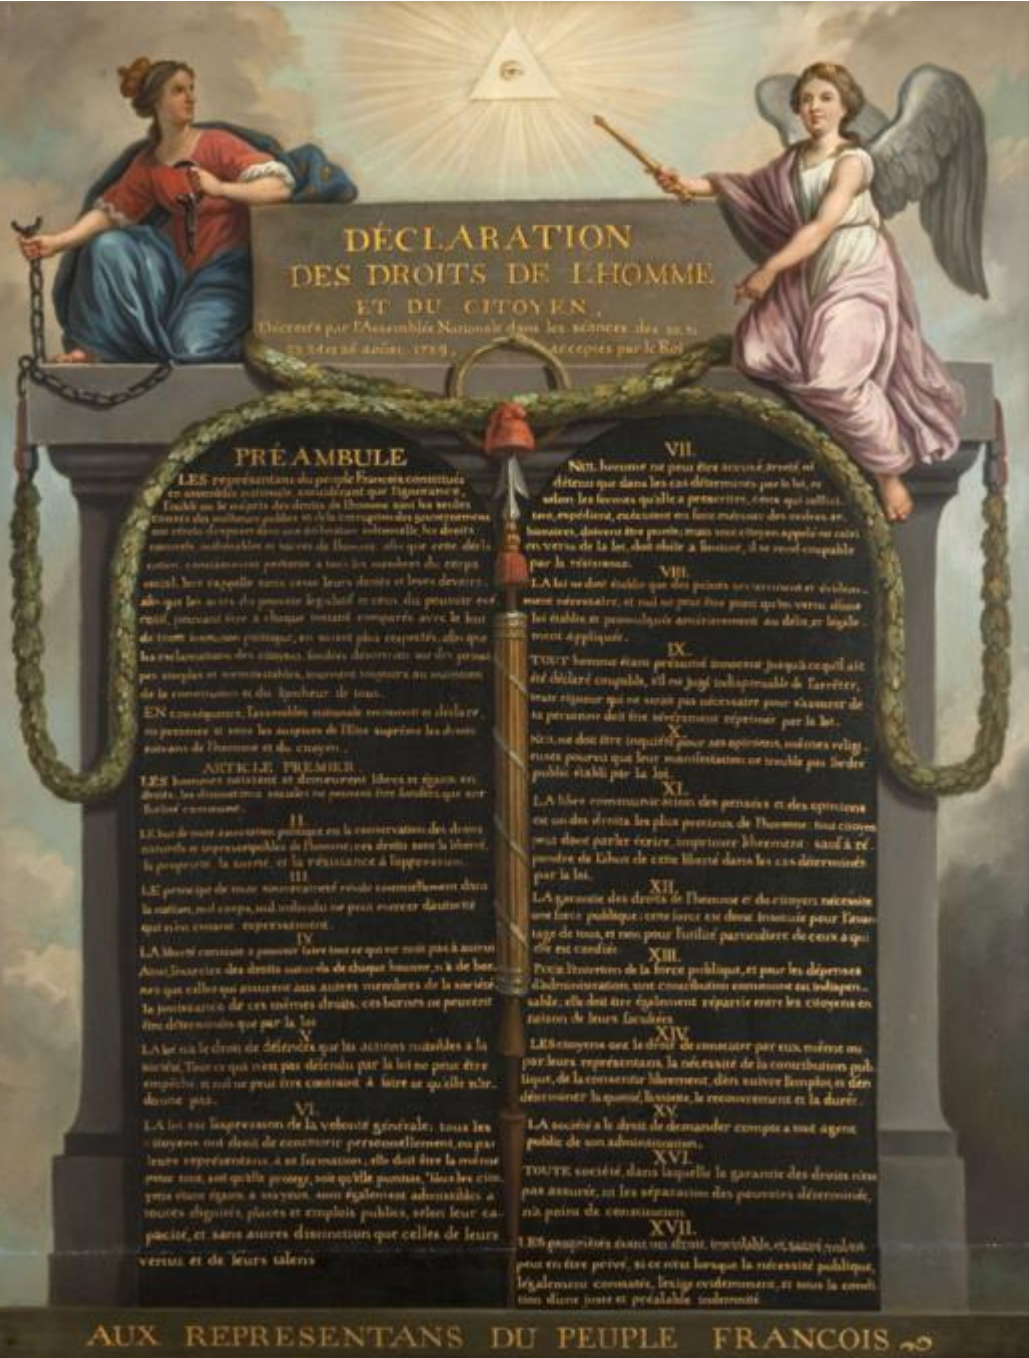 DÉCLARATION
DES DROITS DE L'HOMME
ET DU CITOYEN,
Décretés par l'Assemblée Nationale dans les séances des 20, 21
23, 24 et 26 août 1789, acceptés par le Roi
PRÉAMBULE
LES représentans du peuple François constitués
en assemblée nationale, considérant que l'ignorance,
l'oubli ou le mépris des droits de l'homme sont les seules
causes des malheurs publics et de la corruption des gouvernemens
les droits
naturels, inaliénables et sacrés de l'homme, afin que cette décla
ration constamment présente a tous les membres du corps
social, leur rappelle sans cesse leurs droits et leurs devoirs,
afin que les actes du pouvoir législatif et ceux du pouvoir exé
cutif, pouvant être à chaque instant comparés avec le but
de toute institution politique, en soient plus respectés; afin que
les réclamations des citoyens, fondées désormais sur des princi
pes simples et incontestables, tournent toujours au maintien
de la constitution et du bonheur de tous.
EN conséquence, l'assemblée nationale reconnoit et déclare,
en presence et sous les auspices de l'Etre suprême les droits
suivans de l'homme et du citoyen.
ARTICLE PREMIER
LES hommes naissent et demeurent libres et égaux en
droits, les distinctions sociales ne peuvent être fondées que sur
l'utilité commune.
II.
LE but de toute association politique est la conservation des droits
naturels et imprescriptibles de l'homme; ces droits sont la liberté,
la propriété, la sureté, et la résistance à l'oppression.
III.
LE principe de toute souveraineté réside essentiellement dans
la nation, nul corps, nul individu ne peut exercer d'autorité
qui n'en emane expressément.
IV.
LA liberté consiste a pouvoir faire tout ce qui ne nuit pas à autrui
Ainsi, l'exercice des droits naturels de chaque homme, n'a de bor-
nes que celles qui assurent aux autres membres de la société
la jouissance de ces mêmes droits; ces bornes ne peuvent
être déterminées que par la loi
V.
LA loi n'a le droit de défendre que les actions nuisibles a la
société. Tout ce qui n'est pas défendu par la loi ne peut être
empêché, et nul ne peut être contraint à faire ce qu'elle n'or-
donne pas.
VI.
LA loi est l'expression de la volonté générale; tous les
citoyens ont droit de concourir personnellement, ou par
leurs représentans, à sa formation; elle doit être la même
pour tous, soit qu'elle protege, soit qu'elle punisse. Tous les cito-
yens étant égaux a ses yeux, sont également admissibles a
toutes dignités, places et emplois publics, selon leur ca-
pacité, et sans autres distinction que celles de leurs
vertus et de leurs talens
VII.
NUL homme ne peut être accusé, arreté ni
détenu que dans les cas déterminés par la loi, et
selon les formes qu'elle a prescrites, ceux qui sollici-
tent, expédient, exécutent ou font exécuter des ordres ar-
bitraires, doivent être punis; mais tout citoyen appelé ou saisi
en vertu de la loi, doit obéir a l'instant, il se rend coupable
par la résistance.
VIII.
LA loi ne doit établir que des peines strictement et évidem-
ment nécessaire, et nul ne peut être puni qu'en vertu d'une
loi établie et promulguée antérierement au délit, et légale
ment appliquée.
IX.
TOUT homme étant présumé innocent jusqu'à ce qu'il ait
été déclaré coupable, s'il est jugé indispensable de l'arrêter,
toute rigueur qui ne serait pas nécessaire pour s'assurer de
sa personne doit être sévèrement réprimée par la loi.
X.
NUL ne doit être inquiété pour ses opinions, mêmes religi-
euses pourvu que leur manifestation ne trouble pas l'ordre
public établi par la loi.
XI.
LA libre communication des pensées et des opinions
est un des droits les plus precieux de l'homme: tout citoyen
peut donc parler écrire, imprimer librement: sauf à ré
pondre de l'abus de cette liberté dans les cas déterminés
par la loi.
XII.
LA garantie des droits de l'homme et du citoyen nécessite
une force publique: cette force est donc instituée pour l'avan-
tage de tous, et non pour l'utilité particuliere de ceux a qui
elle est confiée.
XIII.
POUR l'entretien de la force publique, et pour les dépenses
d'administration, une contribution commune est indispen-
sable, elle doit être également répartie entre les citoyens en
raison de leurs facultées
XIV.
LES citoyens ont le droit de constater par eux même ou
par leurs représentans, la nécessité de la contribution pub-
lique, de la consentir librement, d'en suivre l'emploi, et d'en
déterminer la quotité, l'assiette, le recouvrement et la durée.
XV.
LA société a le droit de demander compte a tout agent
public de son administration.
XVI.
TOUTE société, dans laquelle la garantie des droits n'est
pas assurée, ni les séparation des pouvoirs déterminée,
n'a point de constitution
XVII.
LES propriétés étant un droit inviolable et sacré, nul ne
peut en être privé, si ce n'est lorsque la nécessité publique,
légalement constatée, l'exige evidemment, et sous la condi
tion d'une juste et préalable indemnité.
AUX REPRESENTANS DU PEUPLE FRANCOIS